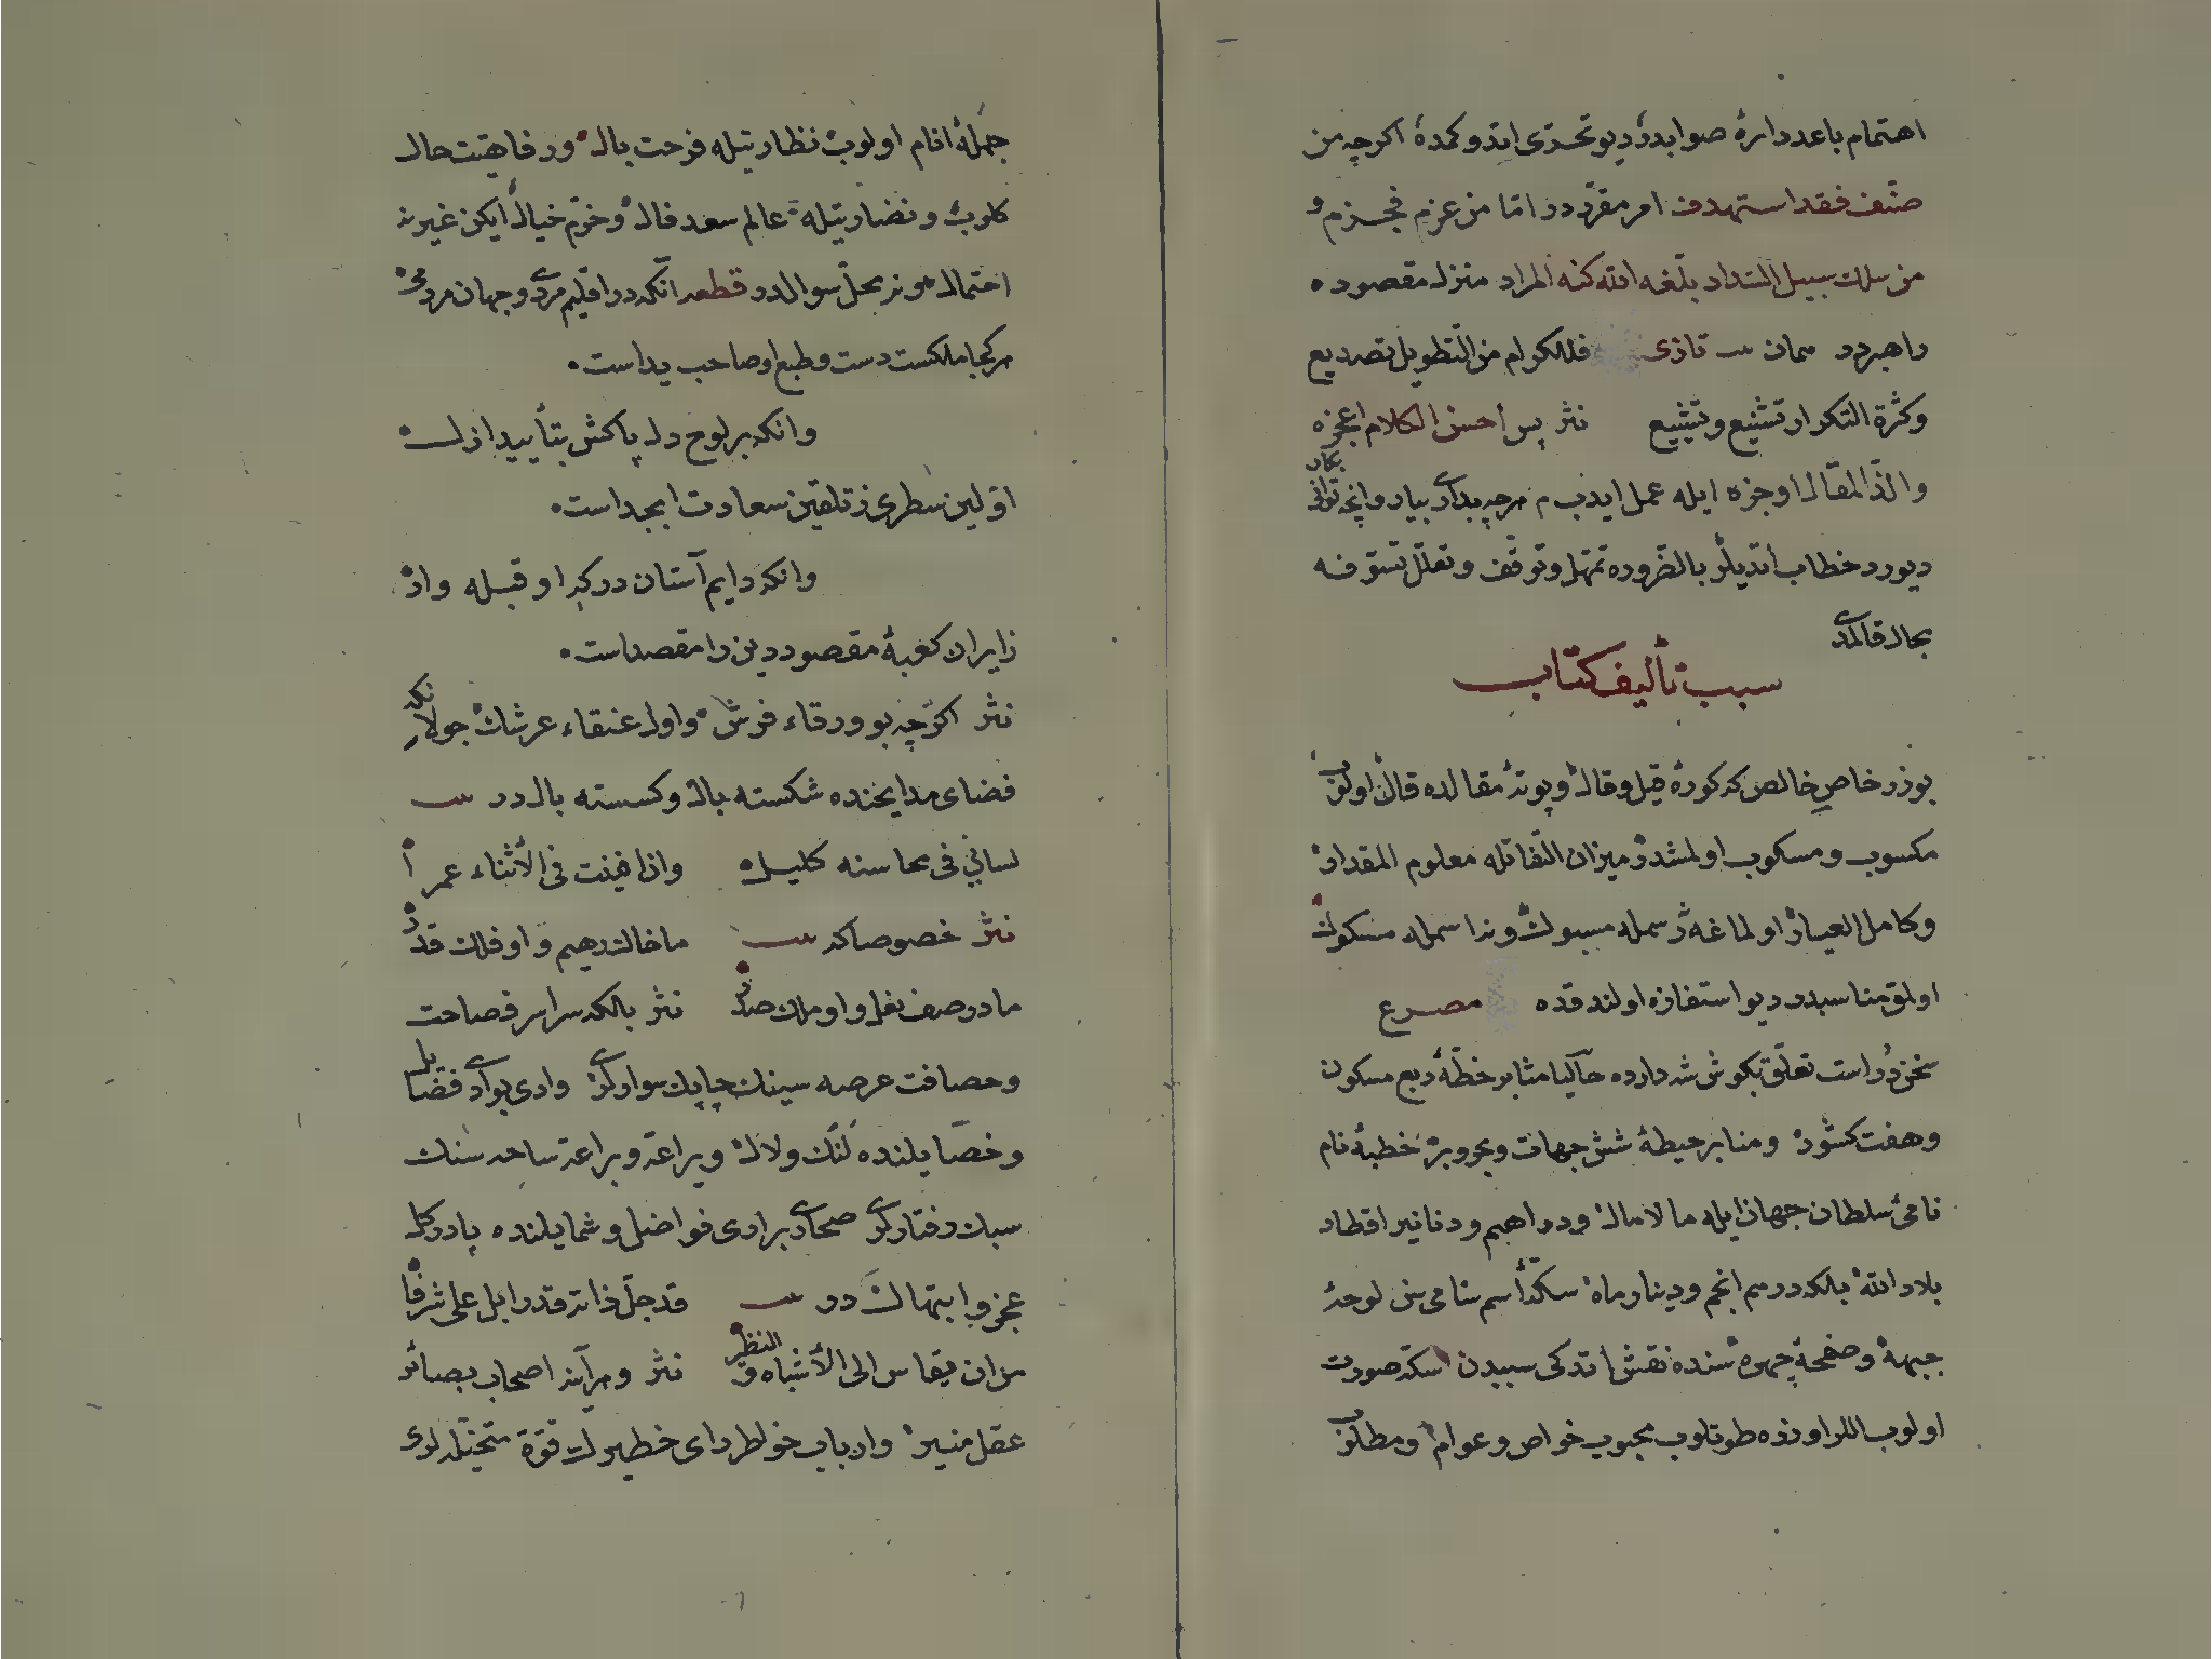 اهتمام باعددارهٔ صوابدر ديو تحرّى اتدوكمده اكرچه من
صنّف فقد استهدف امر مقرّردر امّا من عزم فجزم و
من سلك سبيل السّداد بلّغه الله كنه المراد منزل مقصوده
راهبردر فللكرام من التّطويل تصديع
وكثرة التكرار تشنيع نثر پس احسن الكلام اعجزه
والذّ المقال اوجزه ايله عمل ايدب م هرچه بداری بيار وانچه توانی بكار
ديورر خطاب اتديلر بالضّروره تمهّل وتوقّف وتعلّل تسوّفه
مجال قالمدی
سبب تأليف كتاب
بو زر خاص خالص كه كورهٔ قيل وقال وبوتهٔ مقالده قال اولنوب
مكسوب ومسكوب اولمشدر ميزان التفاتله معلوم المقدار
وكامل العيار اولماغه رسمله مسبوك وندا سمله مسكوك
اولمق مناسبدر ديو استفازه اولندقده مصرع
سخن درّاست تعلّق بكوش شه دارد حاليا منابر خطّهٔ ربع مسكون
وهفت كشور ومنابر حيطهٔ شش جهات وبحر وبرّ خطبهٔ نام
نامئ سلطان جهان ايله مالامال ودراهم ودنانير اقطار
بلاد الله بلكه درهم انجم ودينار ماه سكّهٔ اسم سامی سن لوحهٔ
جبهه وصفحهٔ چهره سنده نقش اتدكی سببدن سكّه صورت
اولوب اللر اوزره طوتلوب محبوب خواص وعوام ومطلوب
جملهٔ انام اولوب نظارتيله فرحت بال ورفاهيت حال
كلوب ونضارتيله عالم سعد فال وخرّم خيال ايكن غيرنه
احتمال ونه محلّ سوالدر قطعه آنكه در اقليم مردی وجهان مردمی
هركجا ملكست دست وطبع او صاحب يداست
وانكه بر لوح دل پاكش بتأييد ازل
اوّلين سطری ز تلقين سعادت ابجد است
وانكه دايم آستان دركه او قبله وار
زايران كعبهٔ مقصود دين را مقصد است
نثر اكرچه بو ورقاء فرش واول عنقاء عرشك جولانكه
فضای مدايحنده شكسته بال وكسسته بالدر
لسانی فی محاسنه كليل واذا فنيت فی الأثناء عمرا
نثر خصوصا كه ما خاك رهيم و او فلك قدر
ما در صف نعل و او ملك صدر نثر بلكه سراسر فصاحت
وحصافت عرصه سينك چاپك سوارلری وادی بوادی فضايل
وخصايلنده لنك ولال ويراعه وبراعه ساحه سنك
سبك رفتارلری صحاری براری فواضل وشمايلنده پا در كل
عجز وابتهال در قد جلّ ذاته قدرا بل علی شرفا
من ان يقاس الی الأشباه والنظر نثر ومرآنه اصحاب بصائر
عقل منير وارباب خواطر رای خطيرك قوّة متخيّله لری